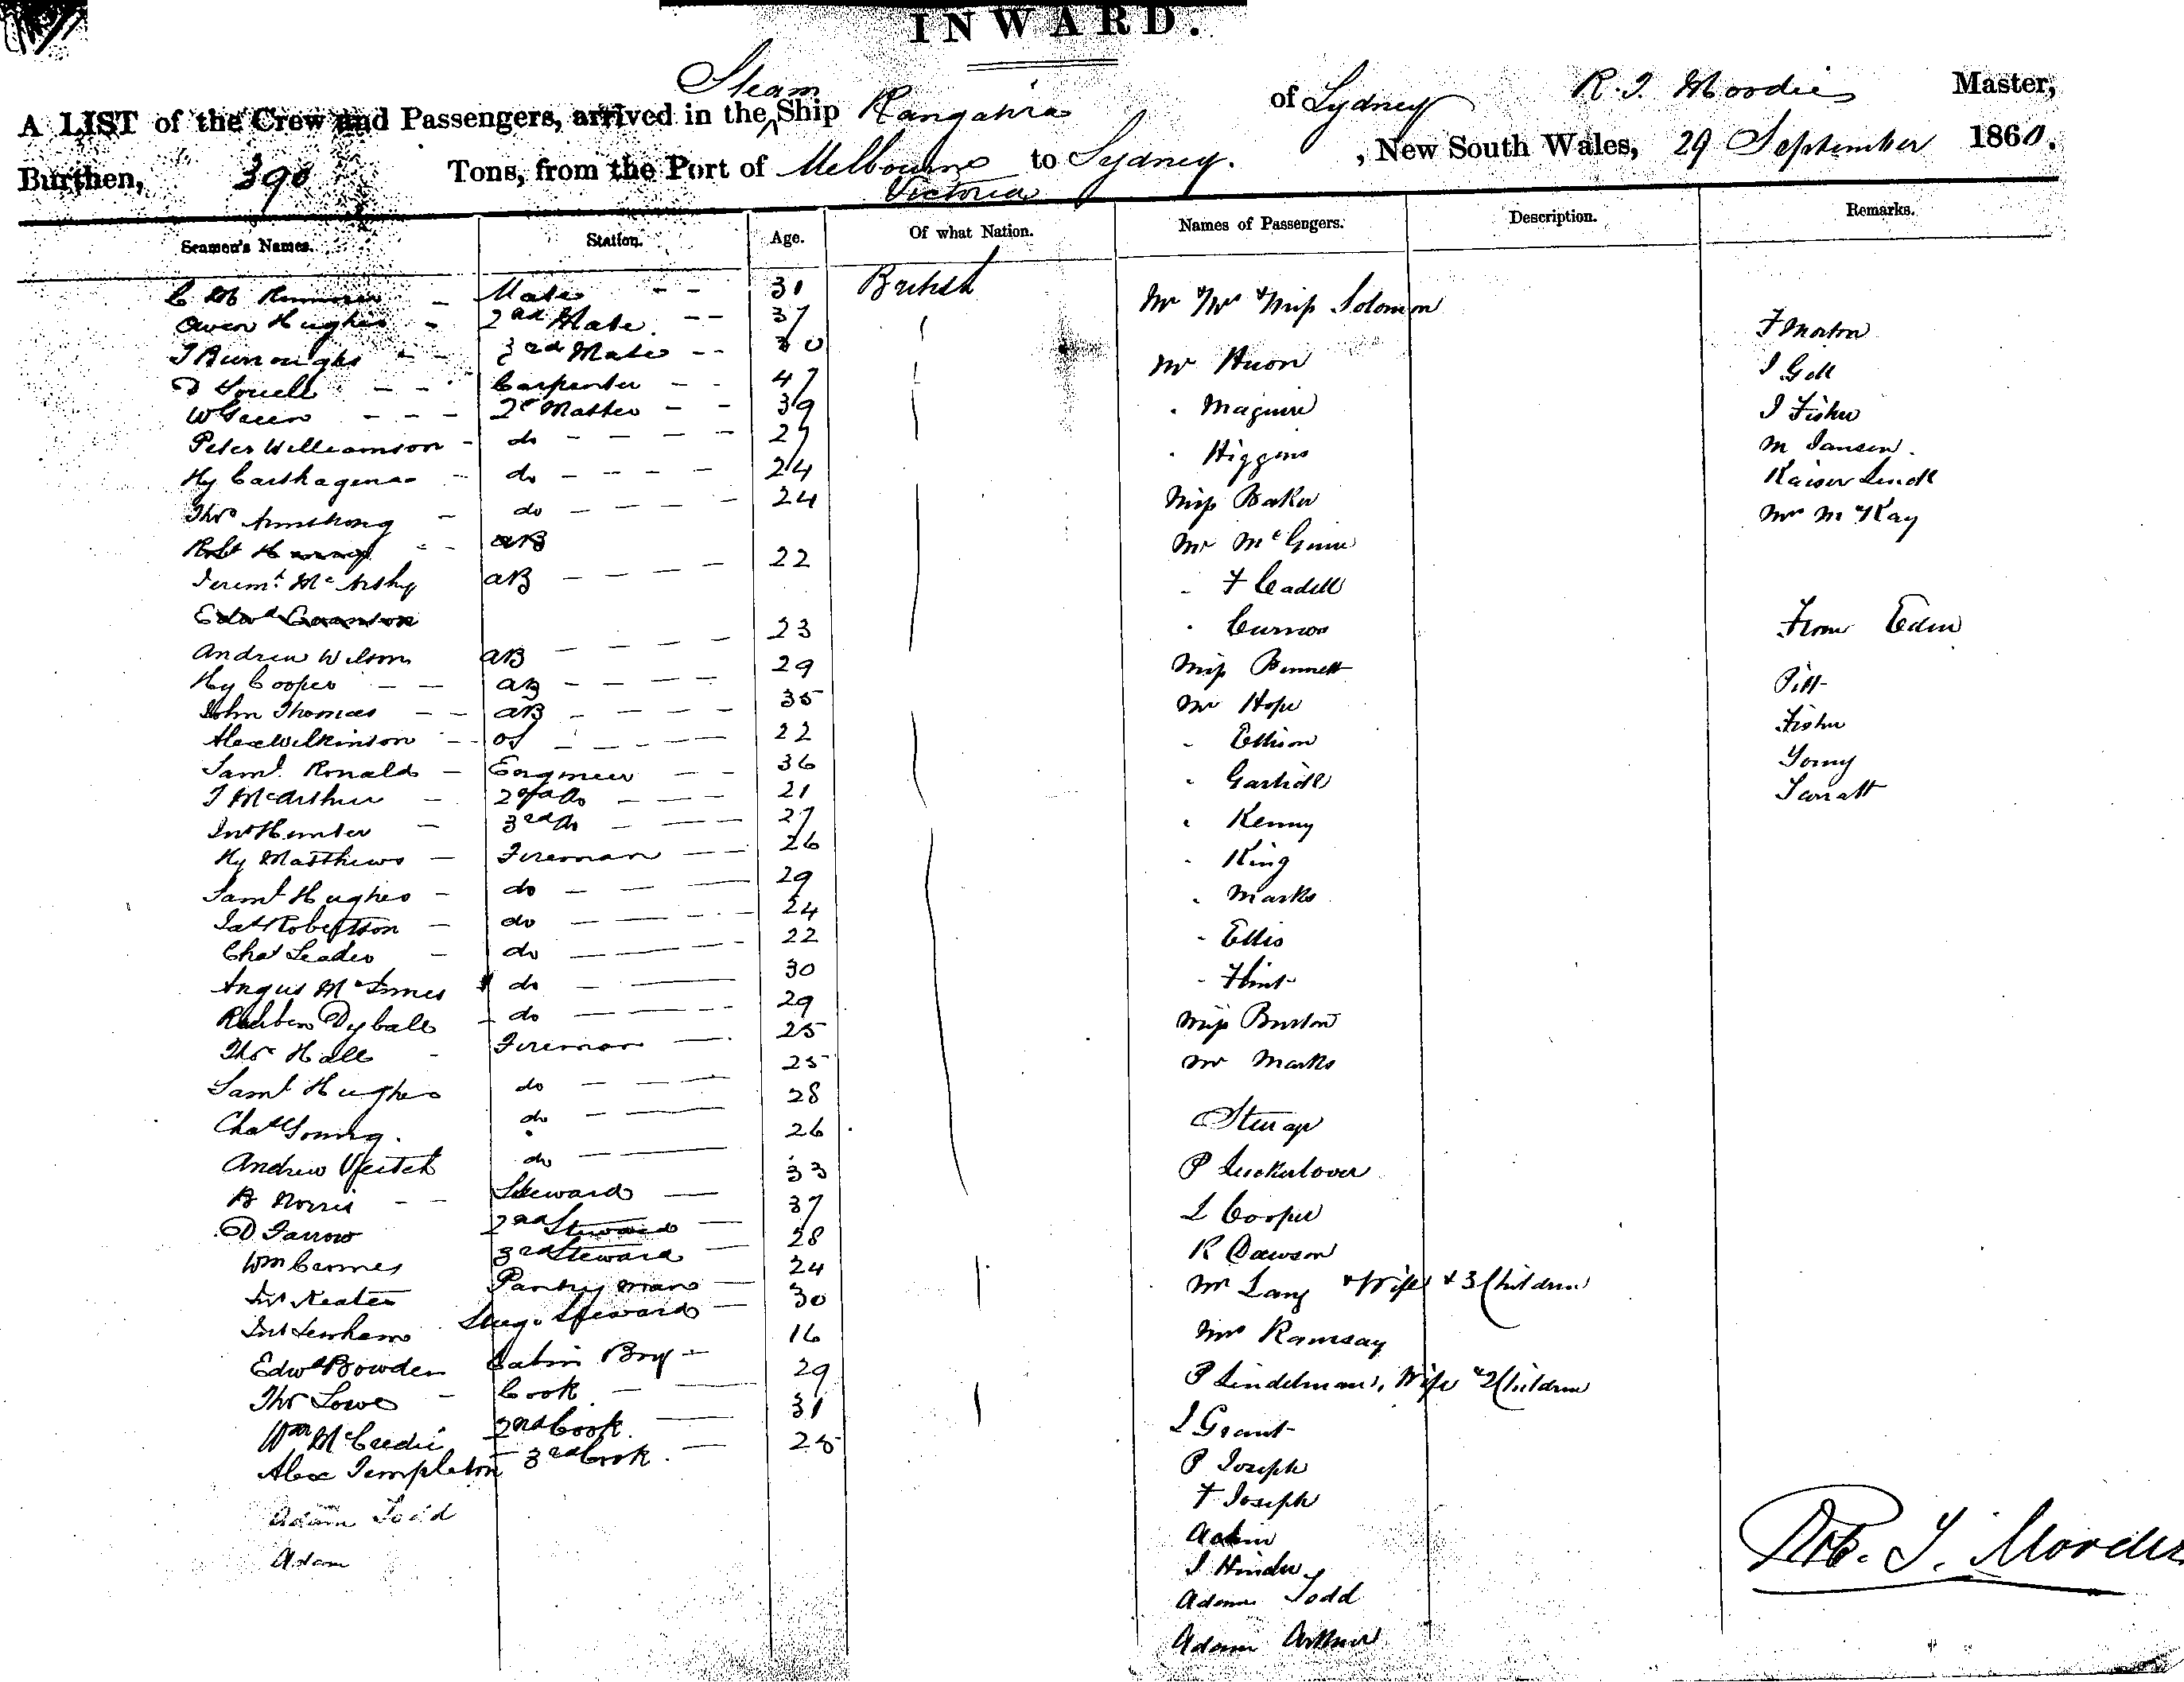 INWARD.
A LIST of the Crew and Passengers, arrived in the Steam Ship of Sydney R. T. Moodie Master,
Burthen, 390 Tons, from the Port of Melbourne Victoria to Sydney. , New South Wales, 29 September 1860.
Seamen's Names. Station. Age. Of what Nation. Names of Passengers. Description. Remarks.
Mate 31 British Mr Mrs & Miss Solomon
Owen Hughes 2nd Mate 37 F Morton
T Burroughs 3rd Mate 30 Mr Huon J Gill
Carpenter 47 J Fisher
W Green 2r Master 39 Maguire M Jansen
Peter Williamson do 27 Higgins
Hy Carthagena do 24 Miss Baker Mr McKay
Thos Armstrong do 24 Mr
Robt AB
AB 22 F Cadell
Edwd Curnow From Eden
Andrew Wilson AB 23 Miss Bennett Pitt
Hy Cooper AB 29 Mr Hope Fisher
John Thomas AB 35 Ellison
Alex Wilkinson OS 22
Saml. Ronald Engineer 36 Kenny
T McArthur 2nd do 21 King
Jno Hunter 3rd do 27 Marks
Hy Matthews Fireman 26 Ellis
Saml Hughes do 29 Flint
Jas Robertson do 24 Miss Burton
Chas Leader do 22 Mr Marks
Angus McInnes do 30
Reuben Dyball do 29
Thos Hall Fireman 25 Steerage
Saml Hughes do 25
Chas Young do 28 L Cooper
Andrew Veitch do 26 R Dawson
B Norris Steward 33 Mr Lang & Wife & 3 Children
D Farrow 2nd Steward 37 Mrs Ramsay
Wm 3rd Steward 28 P Lindelman, Wife & 2 Children
Jno Keates Pantry man 24 J Grant
Jno Lenham Steward 30 P Joseph
Edwd Bowden Cabin Boy 16 F Joseph
Thos Lowe Cook 29
Wm McCredie 2nd Cook 31
Alex Templeton 3rd Cook 25
Adam Todd Adam Todd
Adam Adam Arthur
Rob. T. Moodie